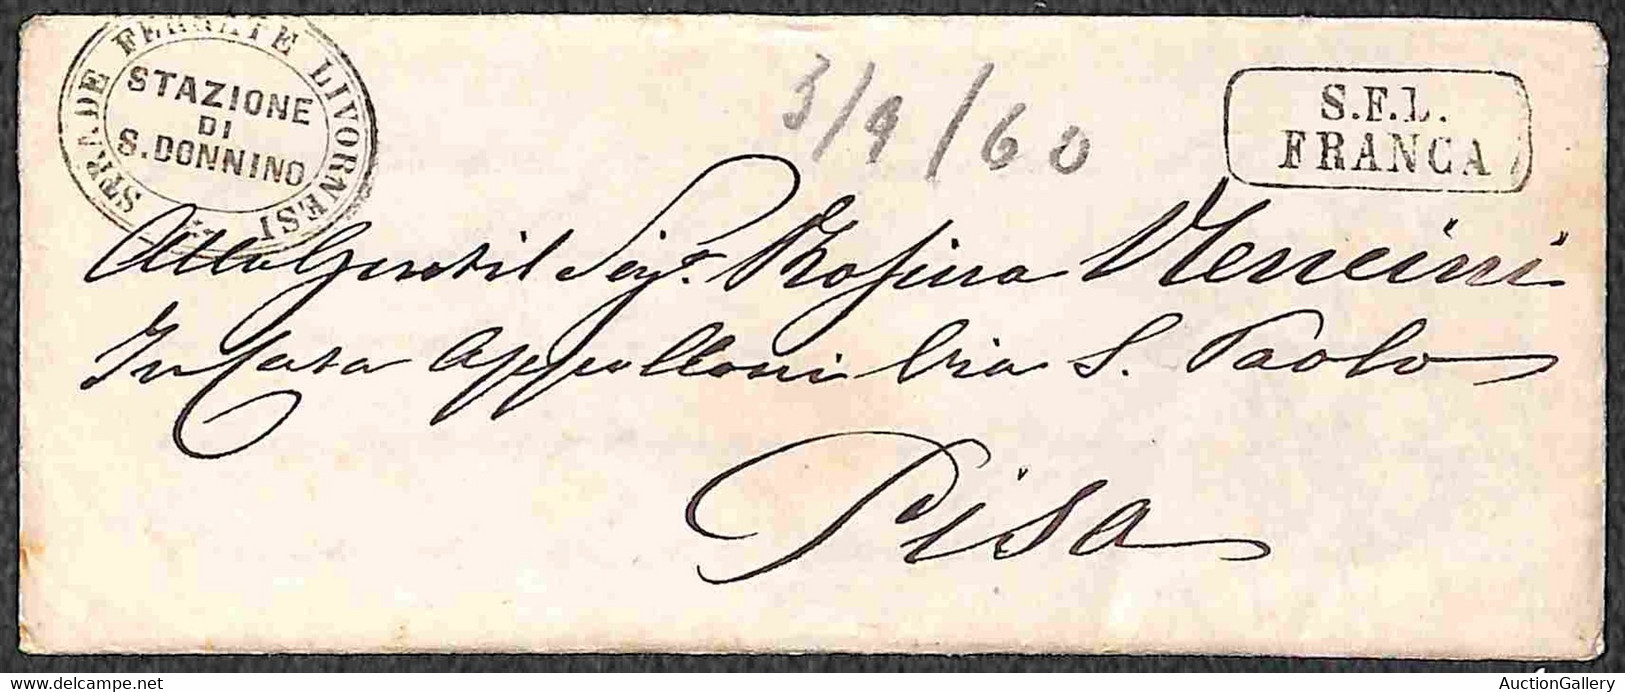 STRADE FERRATE LIVORNESI
STAZIONE
DI
S. DONNINO
3/9/60
S.F.L.
FRANCA
Alla Gentil Sigª. Rosina Mencini
In Casa Appolloni Via S. Paolo
Pisa
delcampe.net
AuctionGallery